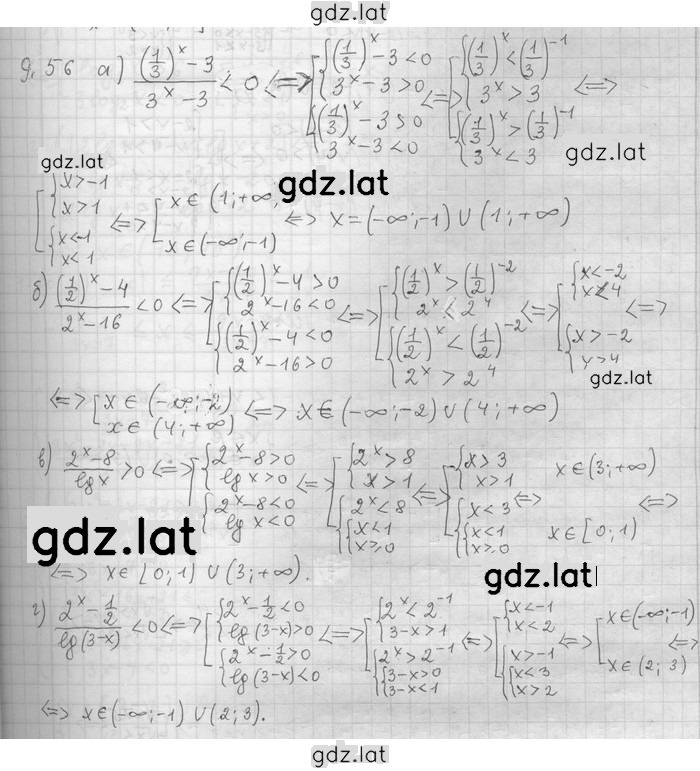 gdz.lat
9.56 а) ((1/3)^x - 3)/(3^x - 3) < 0 <=> [ { (1/3)^x - 3 < 0 ; 3^x - 3 > 0 ; { (1/3)^x - 3 > 0 ; 3^x - 3 < 0 <=> [ { (1/3)^x < (1/3)^-1 ; 3^x > 3 ; { (1/3)^x > (1/3)^-1 ; 3^x < 3 <=>
gdz.lat
gdz.lat
gdz.lat
[ { x > -1 ; x > 1 ; { x < -1 ; x < 1 <=> [ x ∈ (1; +∞, ; x ∈ (-∞; -1) <=> x = (-∞; -1) ∪ (1; +∞)
б) ((1/2)^x - 4)/(2^x - 16) < 0 <=> [ { (1/2)^x - 4 > 0 ; 2^x - 16 < 0 ; { (1/2)^x - 4 < 0 ; 2^x - 16 > 0 <=> [ { (1/2)^x > (1/2)^-2 ; 2^x < 2^4 ; { (1/2)^x < (1/2)^-2 ; 2^x > 2^4 <=> [ { x < -2 ; x < 4 ; { x > -2 ; x > 4 <=>
gdz.lat
<=> [ x ∈ (-∞; -2) ; x ∈ (4; +∞) <=> x ∈ (-∞; -2) ∪ (4; +∞)
в) (2^x - 8)/(lg x) > 0 <=> [ { 2^x - 8 > 0 ; lg x > 0 ; { 2^x - 8 < 0 ; lg x < 0 <=> [ { 2^x > 8 ; x > 1 ; { 2^x < 8 ; { x < 1 ; x ≥ 0 <=> [ { x > 3 ; x > 1 ; { x < 3 ; { x < 1 ; x ≥ 0 <=> x ∈ (3; +∞) ; x ∈ [0; 1) <=>
gdz.lat
gdz.lat
<=> x ∈ [0; 1) ∪ (3; +∞).
г) (2^x - 1/2)/(lg (3-x)) < 0 <=> [ { 2^x - 1/2 < 0 ; lg (3-x) > 0 ; { 2^x - 1/2 > 0 ; lg (3-x) < 0 <=> [ { 2^x < 2^-1 ; 3-x > 1 ; { 2^x > 2^-1 ; { 3-x > 0 ; 3-x < 1 <=> [ { x < -1 ; x < 2 ; { x > -1 ; { x < 3 ; x > 2 <=> [ x ∈ (-∞; -1) ; x ∈ (2; 3)
<=> x ∈ (-∞; -1) ∪ (2; 3).
gdz.lat